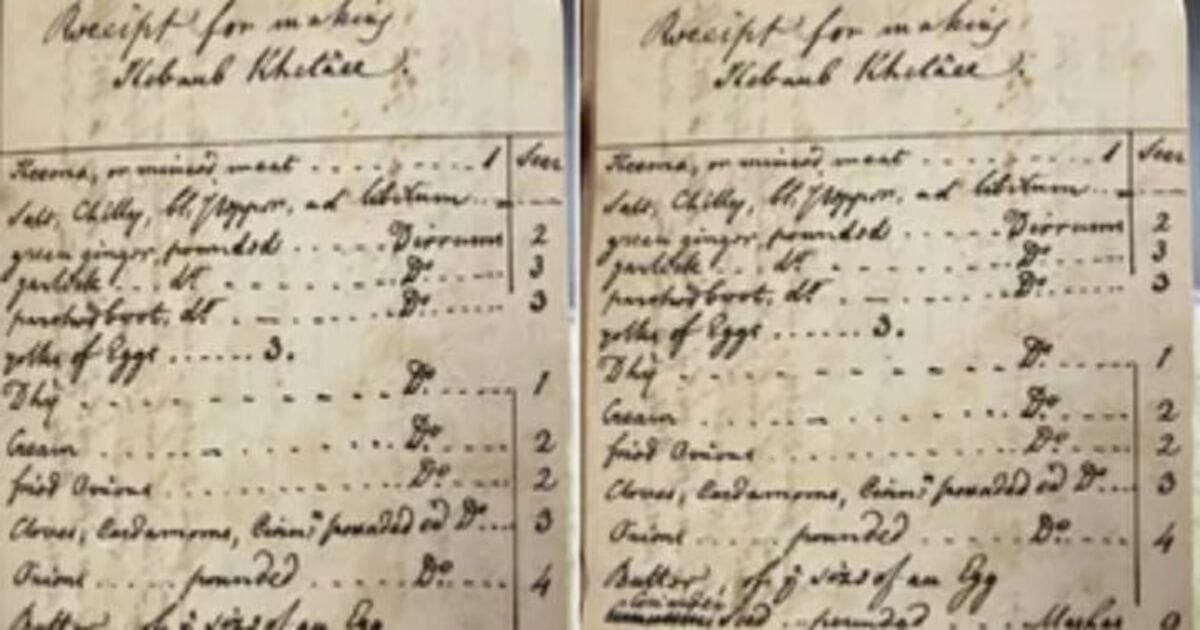 Receipt for making
Kebaub Khelâee.
Keema, or minced meat . . . . . . . . . 1 Seer
Salt, Chilly, bl. Pepper, ad libitum . .
green ginger pounded . . . . . Dirrums 2
garlick . . . dº . . . . . . Dº . . . . 3
parched grot. dº . . — . . . . Dº . . . . 3
yolks of Eggs . . . . . . 3.
Dhij . . . . . . . . . Dº . . . . . 1
Cream . . . . . . . . Dº . . . . . 2
fried Onions . . . . . . . . . Dº . . . . 2
Cloves, Cardamoms, Cinnⁿ pounded ea Dº . . . 3
Onions . . . . . pounded . . . . . . Dº . . . . 4
Butter, of ye size of an Egg
Receipt for making
Kebaub Khelâee.
Keema, or minced meat . . . . . . . . . 1 Seer
Salt, Chilly, bl. Pepper, ad libitum . .
green ginger pounded . . . . . Dirrums 2
garlick . . . dº . . . . . . Dº . . . . 3
parched grot. dº . . — . . . . Dº . . . . 3
yolks of Eggs . . . . . . 3.
Dhij . . . . . . . . . Dº . . . . . 1
Cream . . . . . . . . Dº . . . . . 2
fried Onions . . . . . . . . . Dº . . . . 2
Cloves, Cardamoms, Cinnⁿ pounded ea Dº . . . 3
Onions . . . . . pounded . . . . . . Dº . . . . 4
Butter, of ye size of an Egg
coriander
Seed . . pounded . . . . Mashas